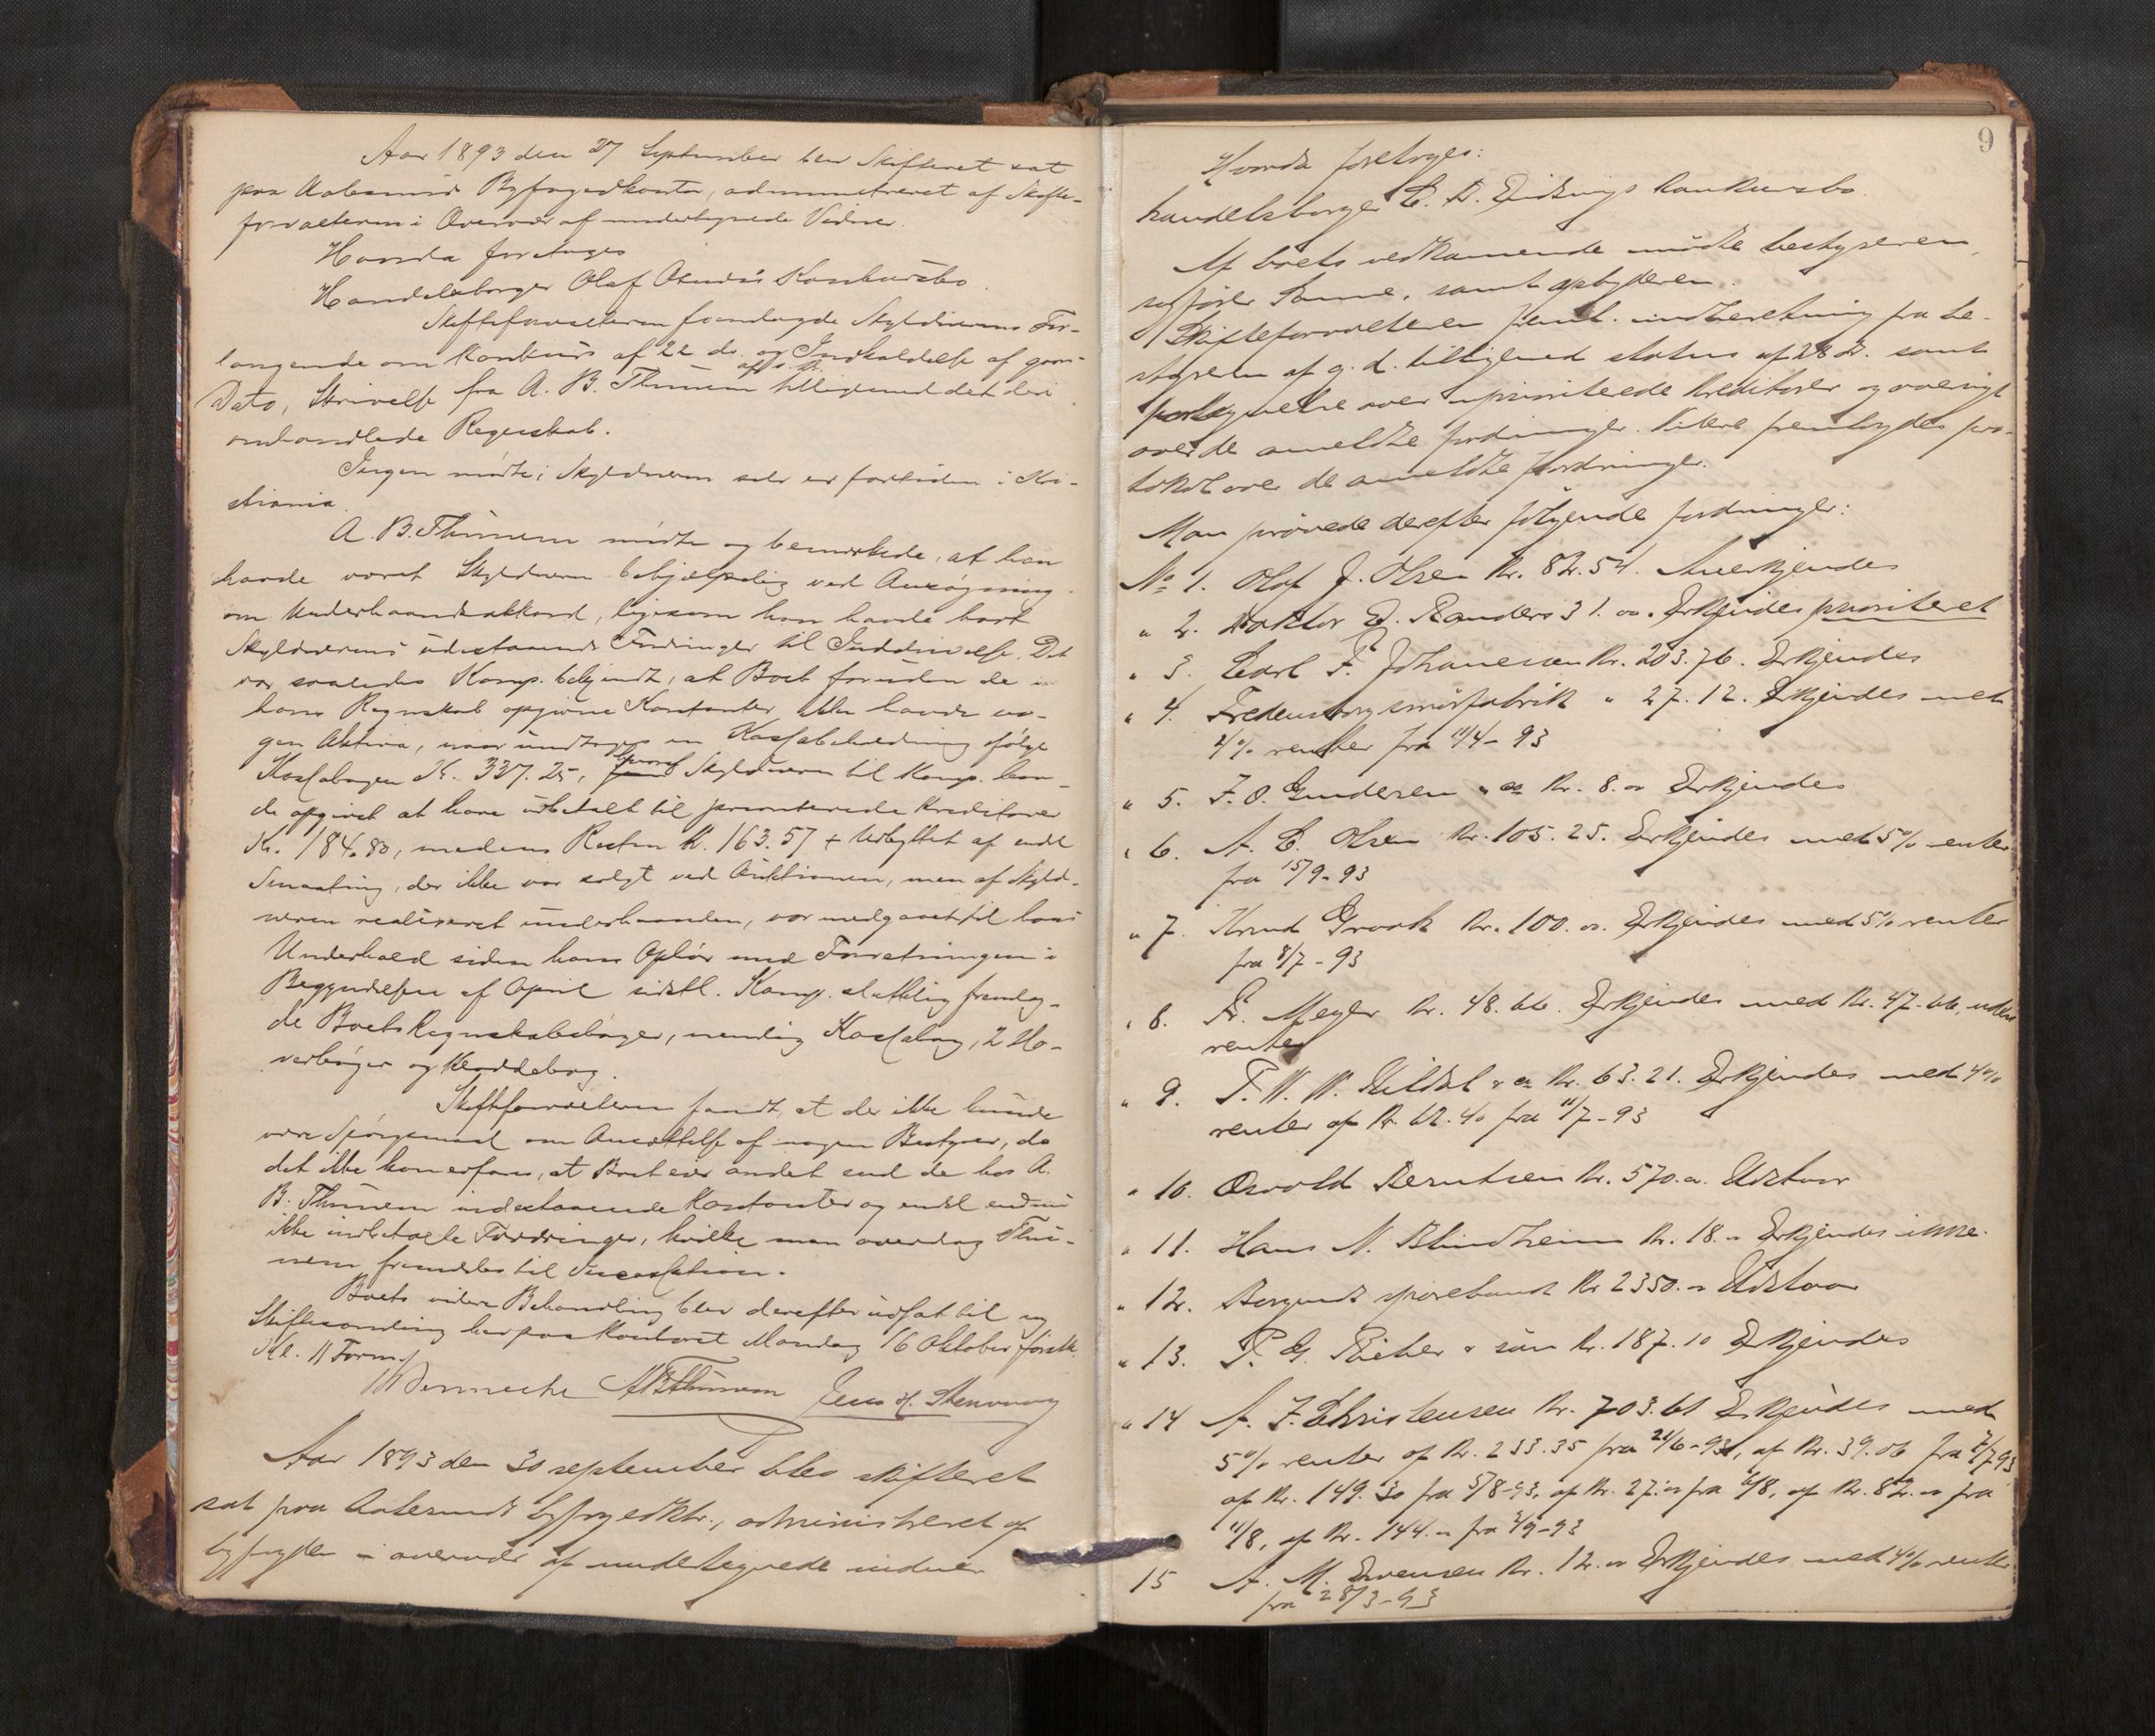 Aar 1893 den 27 September blev Skifteret sat
paa Aalesunds Byfogedkontor, administreret af Skifte-
forvalteren i Overvær af undertegnede Vidner.
Hvorda foretoges
Handelsborger Olaf Konkursbo.
Skifteforvalteren fremlagde Skyldnerens For-
langende om Konkurs af 22 ds. og Indkaldelse af
Dato, Skrivelse fra A. B. Thunem tilligemed det deri
omhandlede Regnskab.
Ingen mødte; Skyldneren selv er fortiden i Kri-
stiania.
A. B. Thunem mødte og bemærkede, at han
havde været Skyldneren behjælpelig ved Ansøgning
om Underhaandsakkord, ligesom han havde havt
Skyldnerens udestaaende Fordringer til Inddrivelse. Det
var saaledes Komp. bekjendt, at Boet foruden de i
hans Regnskab opgivne Kontanter ikke havde no-
gen Aktiva, naar undtages en Kassabeholdning ifølge
Kassabogen K. 337.25, hvoraf Skyldneren til Komp. hav-
de opgivet at have udbetalt til prioriterede Kreditorer
Kr. 184.80, medens Resten K. 163.57 + Udbyttet af endl
Smaating, der ikke var solgt ved Auktionen, men af Skyld-
neren realiseret underhaanden, var medgaaet til hans
Underhold siden hans Ophør med Forretningen i
Begyndelsen af April sidstl. Komp. slutelig fremlag-
de Boets Regnskabsbøger, nemlig Kassabog, 2 Ho-
vedbøger og Kladdebog.
Skifteforvalteren fandt, at der ikke kunde
være Spørgsmaal om Ansættelse af nogen Bestyrer, da
det ikke kan erfares, at Boet eier andet end de hos A.
B. Thunem indestaaende Kontanter og endl endnu
ikke indbetalte Fordringer, hvilke man overdrog Thu-
nem fremdeles til Incassation.
Boets videre Behandling blev derefter udsat til ny
Skiftesamling her paa Kontoret Mandag 16 Oktober førstk.
Kl. 11 Form.
ABThunem Jens H. Stenvaag
Aar 1893 den 30 september blev skifteret
sat paa Aalesunds byfogedktr., administreret af
byfogden i overvær af undertegnede vidner
9
Hvorda foretoges:
handelsborger C. D. konkursbo.
Af boets vedkommende mødte bestyreren,
sagfører, samt opbyderen.
Skifteforvalteren freml. indberetning fra be-
styreren af g. d. tilligemed status af 28 ds. samt
fortegnelse over uprioriterede kreditorer og oversigt
over de anmeldte fordringer. Videre fremlagdes pro-
tokol over de anmeldte fordringer.
Man prøvede derefter følgende fordringer:
No 1. Olaf J. Olsen Kr. 82.54. Anerkjendes
" 2. Doktor E. Randers 31. oo. Erkjendes prioriteret
" 3. Carl F. Johannesen Kr. 203.76. Erkjendes
" 4. Fredensborg smørfabrik " 27.12. Erkjendes med
4% renter fra 11/4-93
" 5. F. O. Gundersen & co Kr. 8. oo Erkjendes
" 6. A. C. Olsen Kr. 105.25. Erkjendes med 5% renter
fra 15/9-93
" 7. Knud Kr. 100. oo. Erkjendes med 5% renter
fra 8/7-93
" 8. Fr. Meyer Kr. 48.66. Erkjendes med Kr. 47.66, uden
renter
" 9. T. W. W. & co Kr. 63.21. Erkjendes med 4%
renter af Kr. 62.40 fra 11/7-93
" 10. Osvald Berntsen Kr. 570. oo. Udstaar
" 11. Hans N. Blindheim Kr. 18. oo Erkjendes ikke.
" 12. Borgunds sparebank Kr 2350. oo Udstaar
" 13. P. G. Rieber & søn Kr. 187.10 Erkjendes
" 14 A. F. Christensen Kr. 703.61 Erkjendes med
5% renter af Kr. 233.35 fra 21/6-93, af Kr. 39.06 fra 7/7 93
af Kr. 149.30 fra 5/8-93, af Kr. 27. oo fra 6/8, af Kr. 82. oo fra
11/8, af Kr. 144. oo fra 2/9-93
15 A. M. Kr. 12. oo Erkjendes med 4% renter
fra 28/3-93